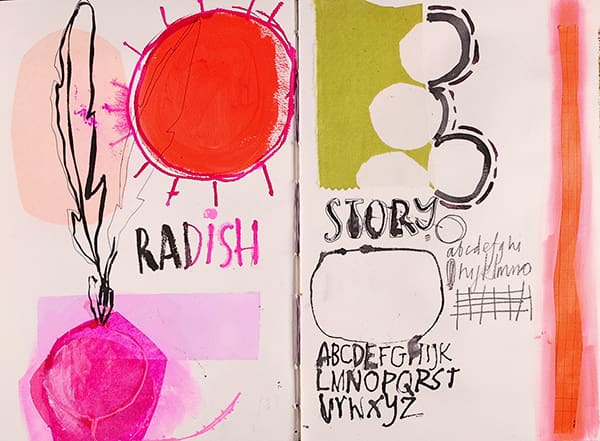 RADISH
STORY
abcdefghi
ABCDEFGHIJK
LMNOPQRST
UVWXYZ